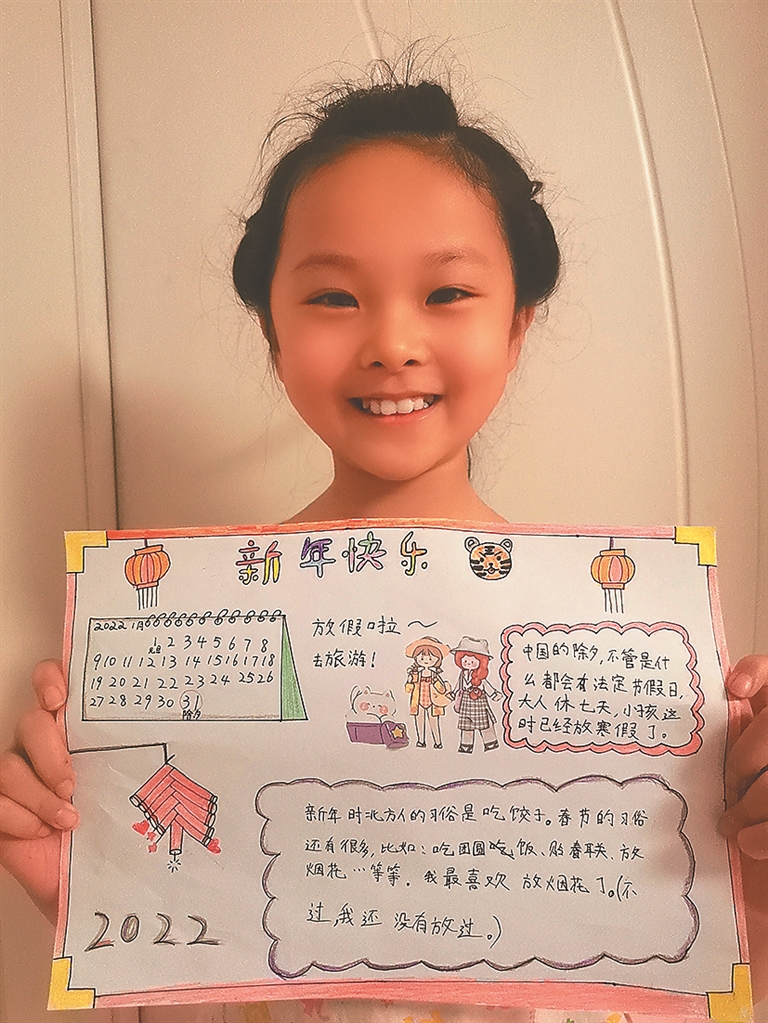 新年快乐
2022 1月
元旦 2 3 4 5 6 7 8
9 10 11 12 13 14 15 16 17 18
19 20 21 22 23 24 25 26
27 28 29 30 31
除夕
放假啦～
去旅游！
中国的除夕,不管是什
么都会有法定节假日,
大人休七天,小孩这
时已经放寒假了。
新年时北方人的习俗是吃饺子。春节的习俗
还有很多,比如:吃团圆吃饭、贴春联、放
烟花…等等。我最喜欢放烟花了。(不
过,我还没有放过。)
2022